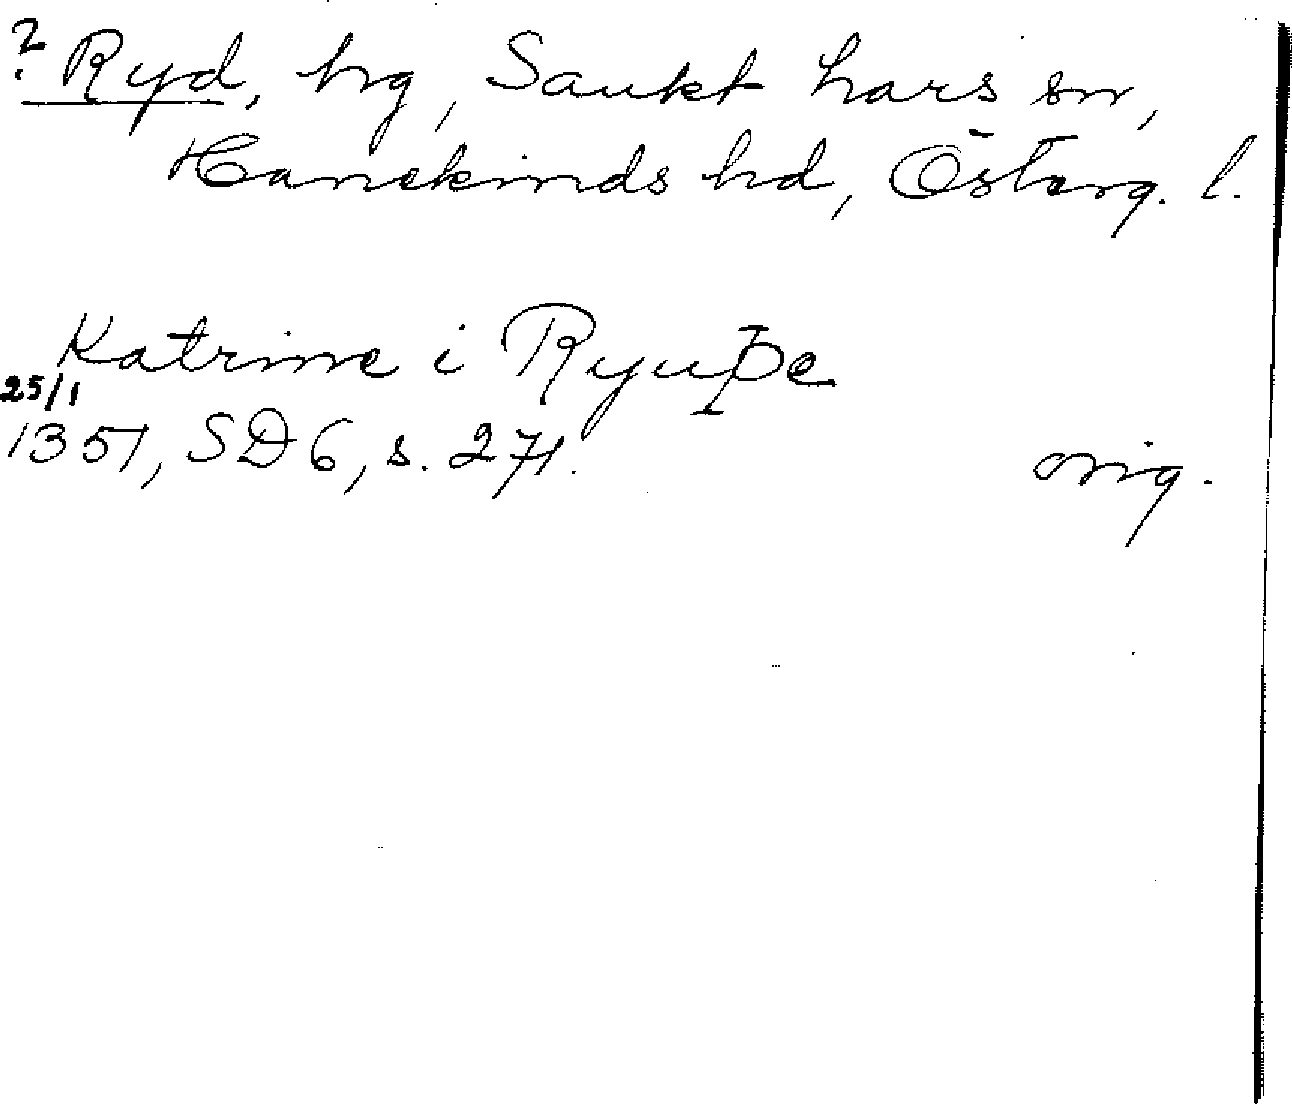 ? Ryd, hg, Sankt Lars sn,
Hanekinds hd, Österg. l.
Katrine i Ryuþe
25/1
1351, SD 6, s. 271.
orig.